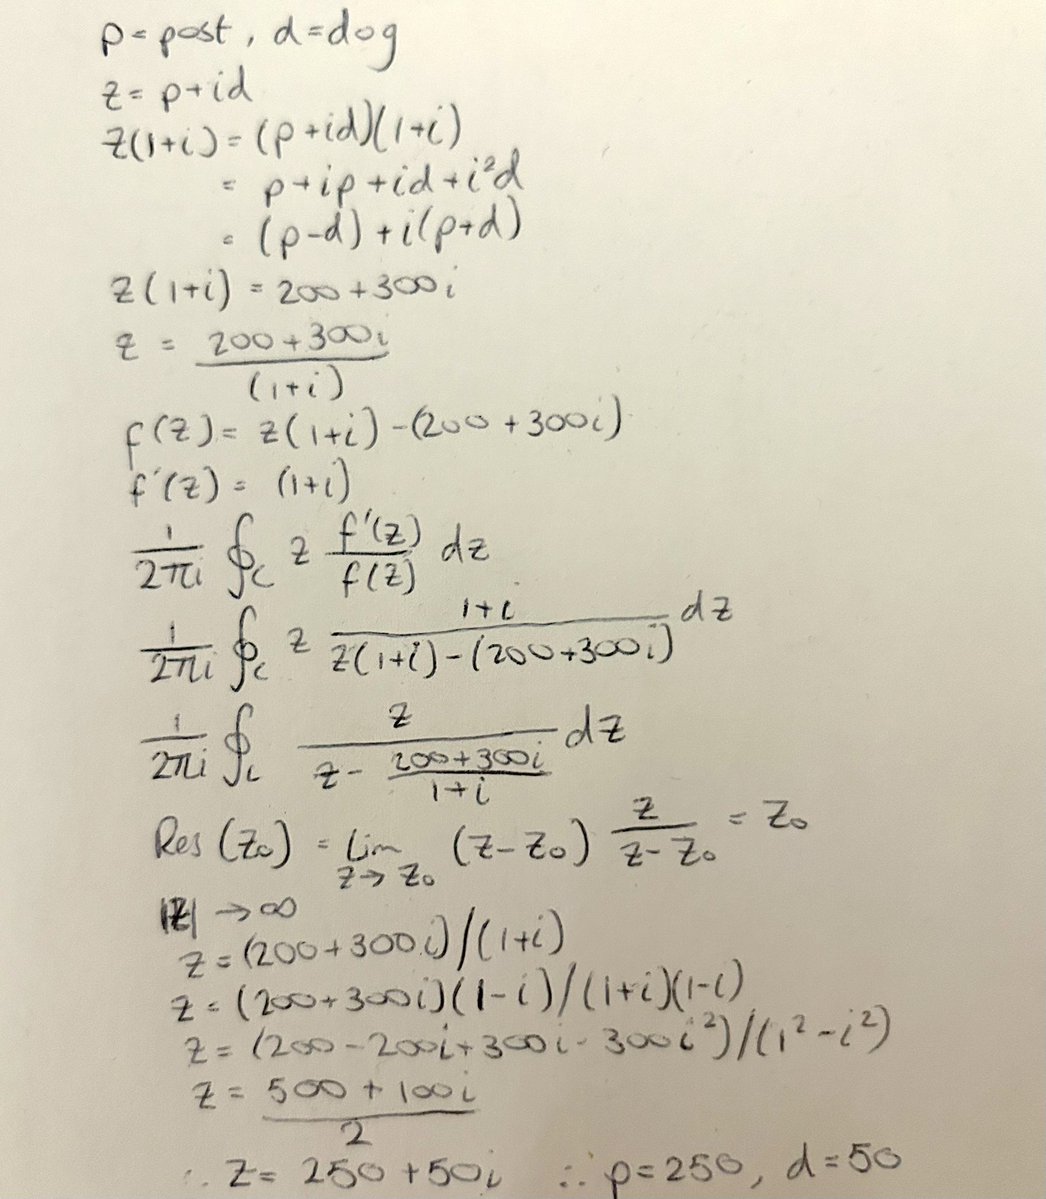 p = post, d = dog
z = p + id
z(1+i) = (p+id)(1+i)
= p + ip + id + i²d
= (p-d) + i(p+d)
z(1+i) = 200 + 300i
z = (200 + 300i)/(1+i)
f(z) = z(1+i) - (200 + 300i)
f'(z) = (1+i)
1/(2πi) ∮_C z f'(z)/f(z) dz
1/(2πi) ∮_C z (1+i)/(z(1+i) - (200+300i)) dz
1/(2πi) ∮_C z/(z - (200+300i)/(1+i)) dz
Res(z₀) = lim_{z→z₀} (z-z₀) z/(z-z₀) = z₀
|z| → ∞
z = (200+300i)/(1+i)
z = (200+300i)(1-i)/(1+i)(1-i)
z = (200 - 200i + 300i - 300i²)/(1² - i²)
z = (500 + 100i)/2
∴ z = 250 + 50i ∴ p = 250, d = 50